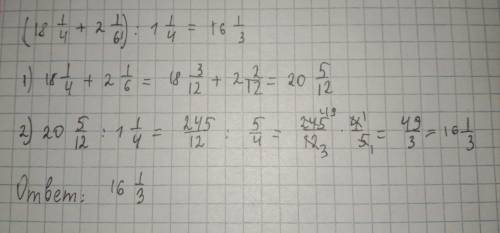 (18 1/4 + 2 1/6) : 1 1/4 = 16 1/3
1) 18 1/4 + 2 1/6 = 18 3/12 + 2 2/12 = 20 5/12
2) 20 5/12 : 1 1/4 = 245/12 : 5/4 = 245 49/12 3 · 4 1/5 1 = 49/3 = 16 1/3
Ответ: 16 1/3